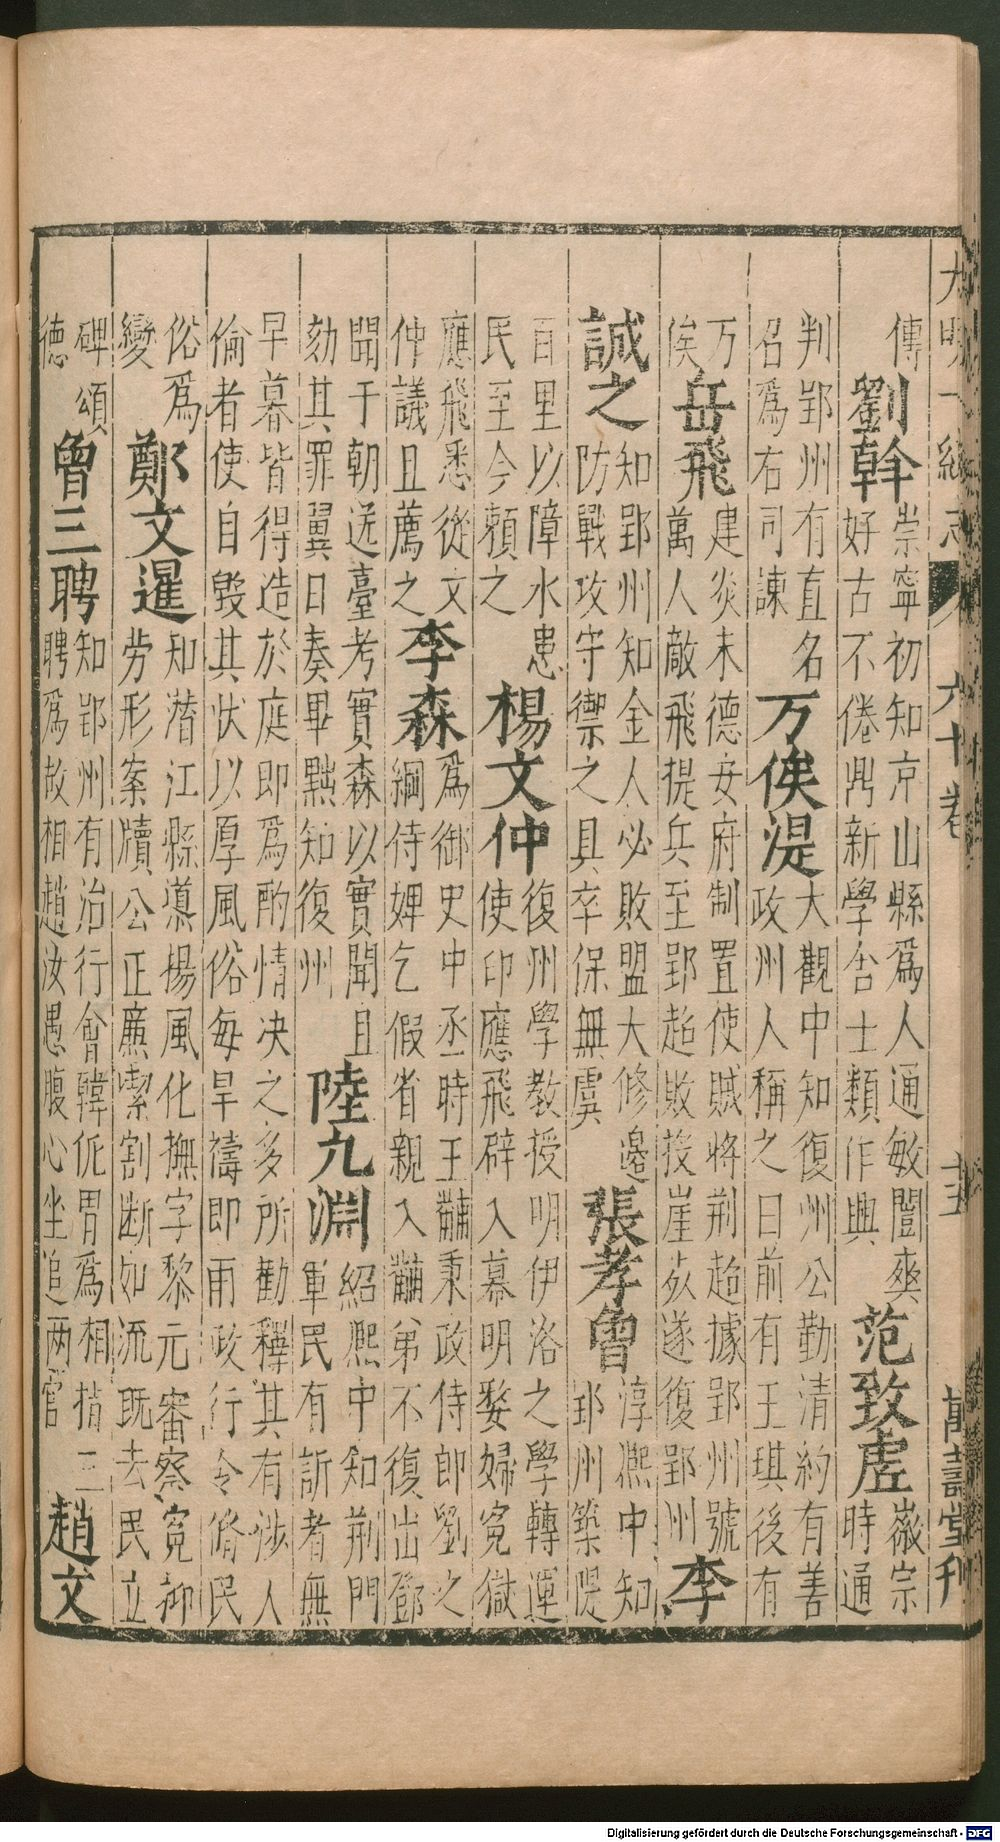 大明一統志 六十卷 十五 萬壽堂刊
傳
劉幹
崇寧初知京山縣爲人通敏闓爽
好古不倦鼎新學舍士類作興
范致虛
徽宗
時通
判郢州有直名
召爲右司諫
万俟湜
大觀中知復州公勤清約有善
政州人稱之曰前有王琪後有
万
俟
岳飛
建炎末德安府制置使賊將荆超據郢州號
萬人敵飛提兵至郢超敗投崖死遂復郢州
李
誠之
知郢州知金人必敗盟大修邊
防戰攻守禦之具卒保無虞
張孝曾
淳熙中知
郢州築隄
百里以障水患
民至今頼之
楊文仲
復州學教授明伊洛之學轉運
使印應飛辟入幕明娶婦寃獄
應飛悉從文
仲議且薦之
李森
爲御史中丞時王黼秉政侍郎劉之
綱侍婢乞假省親入黼第不復出鄧
聞于朝送臺考實森以實聞且
劾其罪翼日奏畢黜知復州
陸九淵
紹熙中知荆門
軍民有訴者無
早暮皆得造於庭即爲酌情决之多所勸釋其有涉人
倫者使自毀其狀以厚風俗每旱禱即雨政行令脩民
俗爲
變
鄭文暹
知潛江縣導揚風化撫字黎元審察寃抑
劳形案牘公正廉潔割斷如流旣去民立
碑頌
德
曾三聘
知郢州有治行會韓侂胄爲相指三
聘爲故相趙汝愚腹心坐追两官
趙文
Digitalisierung gefördert durch die Deutsche Forschungsgemeinschaft - DFG